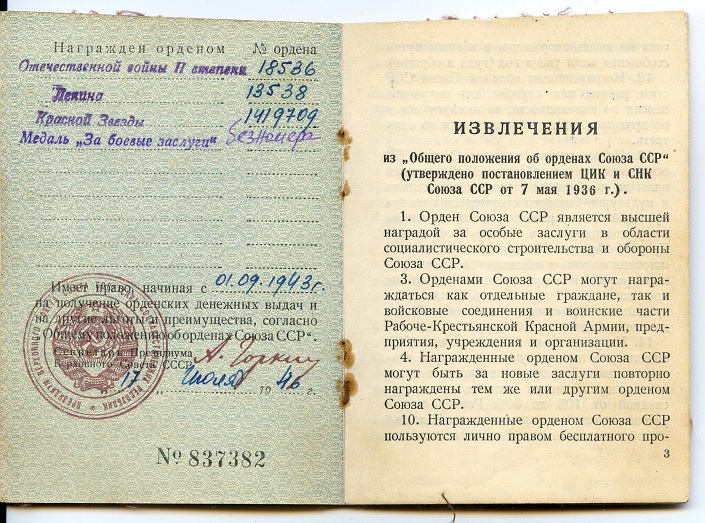 Награжден орденом № ордена
Отечественной войны II степени 18536
Ленина 13538
Красной Звезды 1419709
Медаль „За боевые заслуги“ без номера
Имеет право, начиная с 01.09.1943г.
на получение орденских денежных выдач и
на другие льготы и преимущества, согласно
„Общему положению об орденах Союза ССР“.
Секретарь Президиума
Верховного Совета СССР А. Горкин
„17“ Июля 1946 г.
№ 837382
ИЗВЛЕЧЕНИЯ
из „Общего положения об орденах Союза ССР“
(утверждено постановлением ЦИК и СНК
Союза ССР от 7 мая 1936 г.).
1. Орден Союза ССР является высшей
наградой за особые заслуги в области
социалистического строительства и обороны
Союза ССР.
3. Орденами Союза ССР могут награ-
ждаться как отдельные граждане, так и
войсковые соединения и воинские части
Рабоче-Крестьянской Красной Армии, пред-
приятия, учреждения и организации.
4. Награжденные орденом Союза ССР
могут быть за новые заслуги повторно
награждены тем же или другим орденом
Союза ССР.
10. Награжденные орденом Союза ССР
пользуются лично правом бесплатного про-
3